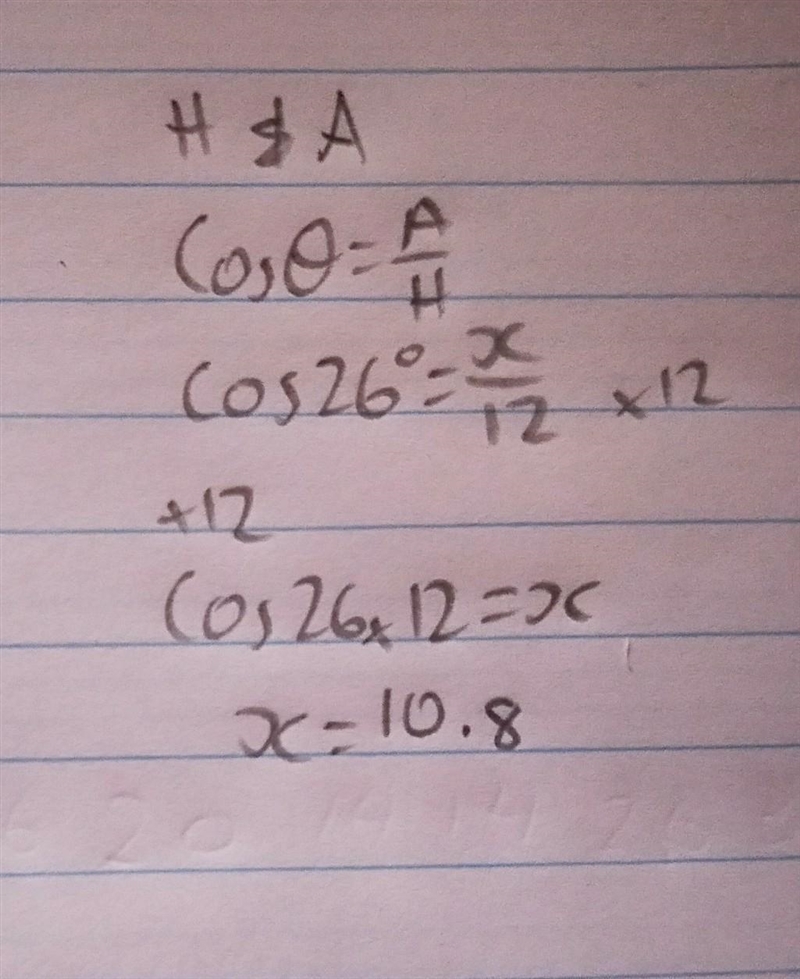 H & A
Cosθ = A/H
Cos26° = x/12 ×12
×12
Cos26×12 = x
x = 10.8